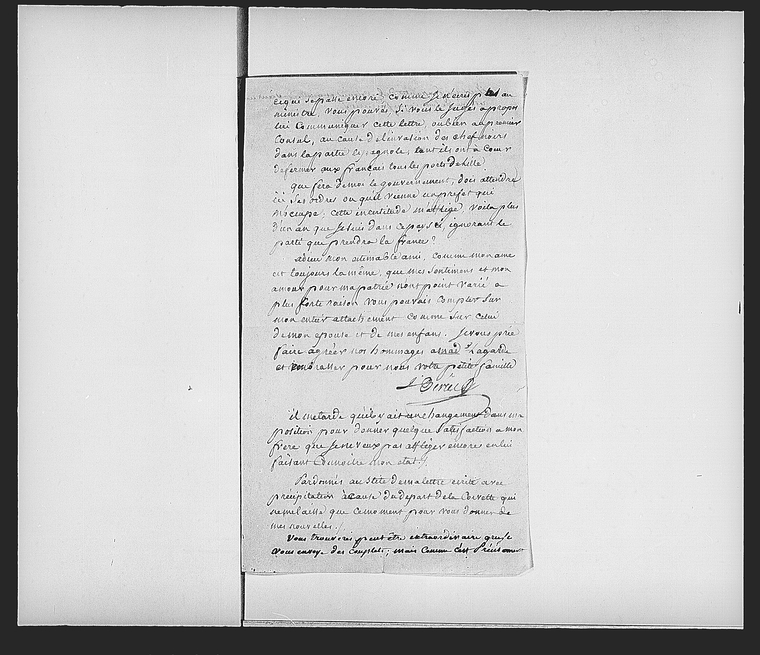 ce qui se passe encore, comme je n'ecris pas au
ministre vous pouvés si vous le jugés apropos
lui Communiquer cette lettre, oubien au premier
Consul, au cause de linvasion des chef noirs
dans la partie Espagnole, tant ils ont a coeur
de fermer aux francais tous les ports de
que fera demoi le gouvernement, dois attendre
ici ses ordres ou quil vienne un prefet qui
m'occupe. cette incertitude m'afflige, voila plus
d'un an que je suis dans ce pays ci, ignorant le
parti que prendra la france?
adieu mon estimable ami, comme mon ame
est toujours la même, que mes sentimens et mon
amour pour ma patrie n'ont point varié a
plus forte raison vous pouvais compter sur
mon entier attachement comme sur celui
de mon epouse et de mes enfans. je vous prie
faire agréer nos hommages a mad. Lagarde
et embrasser pour nous votre petite famille

il me tarde quil y ait un changement dans ma
position pour donner quelque satisfaction a mon
frere que je ne veux pas affliger encore en lui
faisant Connoitre mon etat./.
Pardonnés au stile de ma lettre ecrite avec
précipitation acause du depart de la Corvette qui
ne me laisse que ce moment pour vous donner de
mes nouvelles./.
Vous trouverés peut être extraordinaire que je
vous envoye des couplets, mais comme c'est